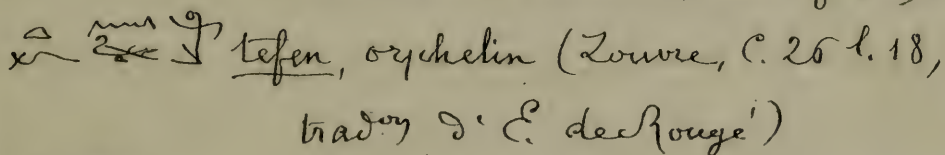 tefen, orphelin (Louvre, C. 26 l. 18,
trad^on d'E. de Rougé)